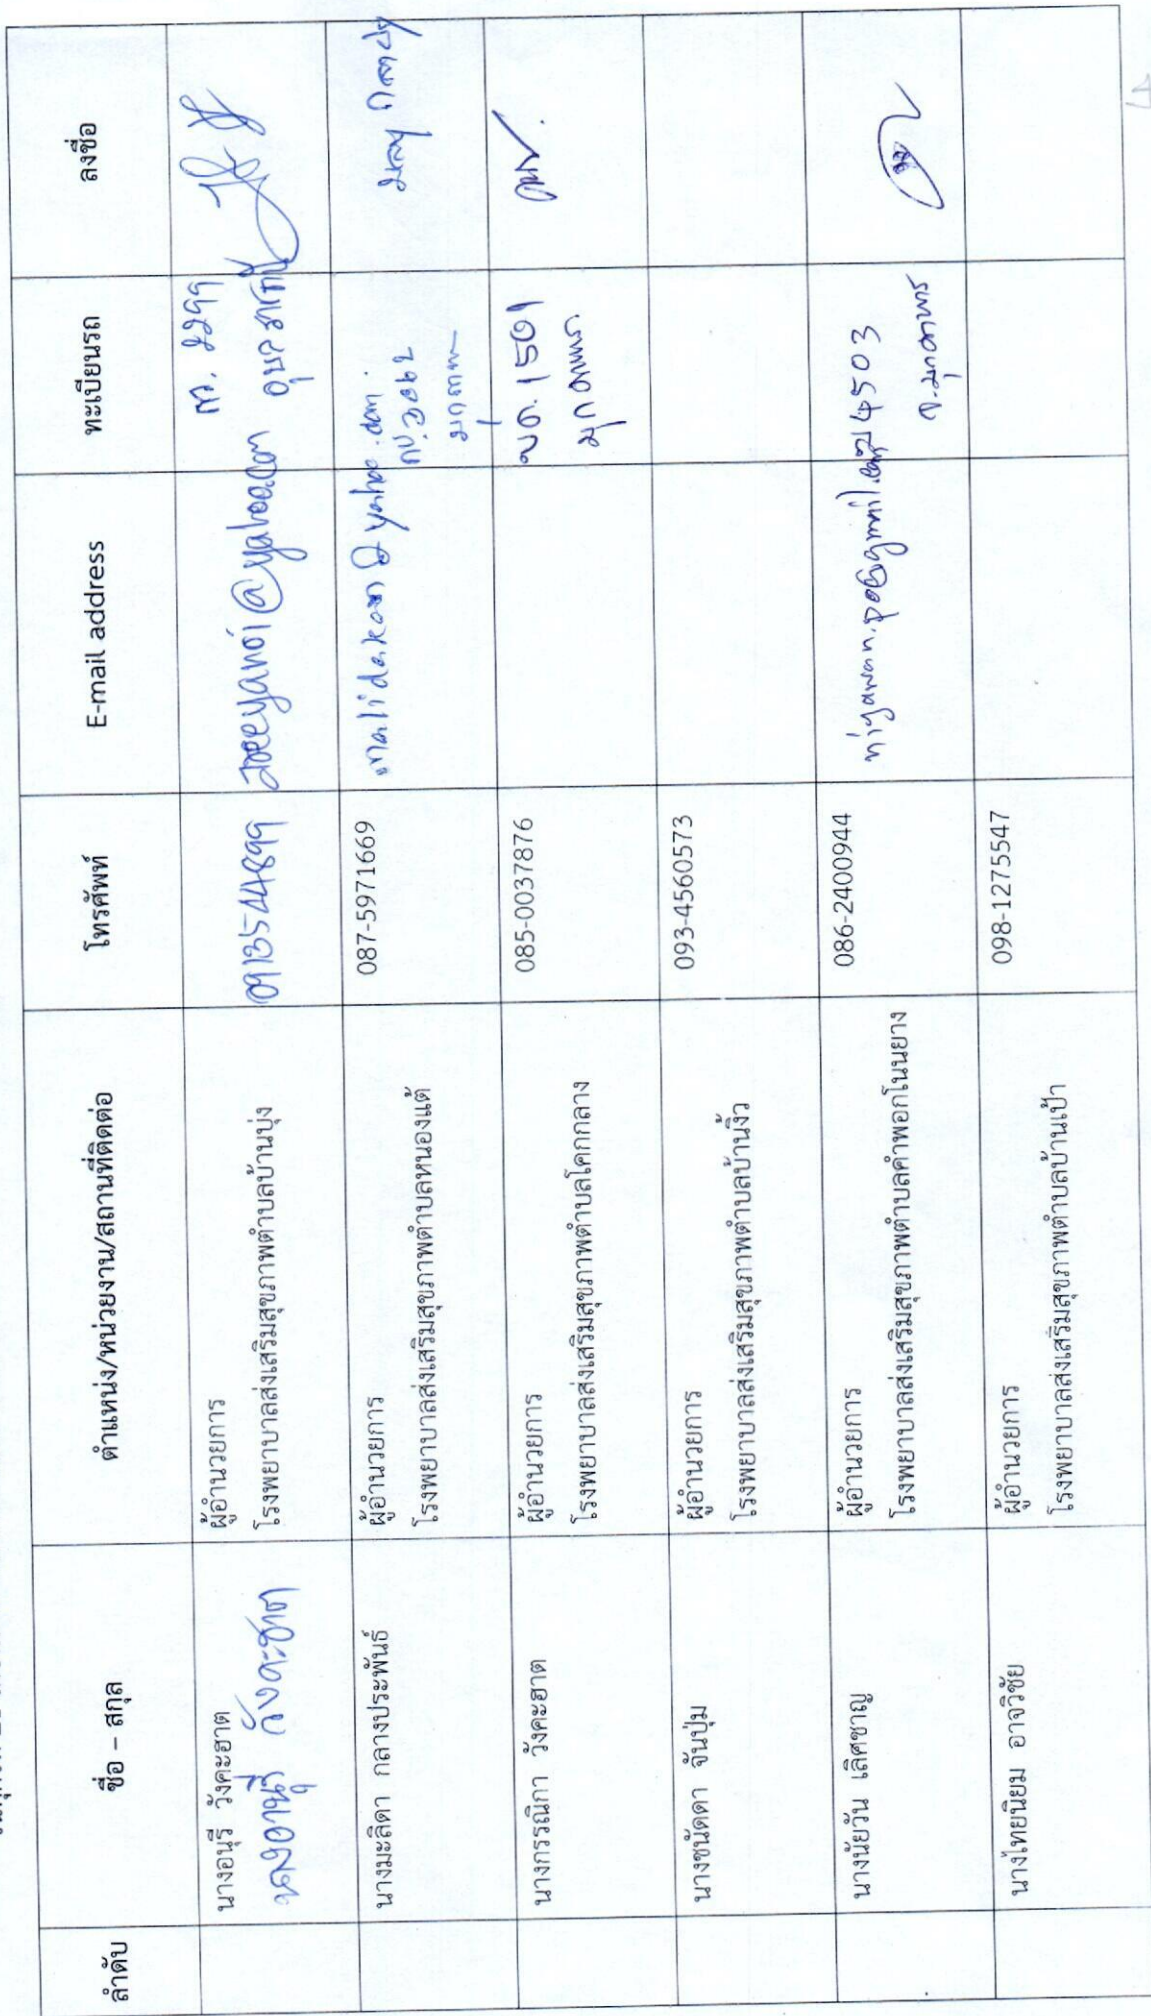 ลำดับ
ชื่อ – สกุล
ตำแหน่ง/หน่วยงาน/สถานที่ติดต่อ
โทรศัพท์
E-mail address
ทะเบียนรถ
ลงชื่อ
นางอนุรี วังคะฮาต
ผู้อำนวยการ
โรงพยาบาลส่งเสริมสุขภาพตำบลบ้านบุ่ง
นางมะลิดา กลางประพันธ์
ผู้อำนวยการ
โรงพยาบาลส่งเสริมสุขภาพตำบลหนองแต้
087-5971669
มุกดาหาร
นางกรรณิกา วังคะฮาต
ผู้อำนวยการ
โรงพยาบาลส่งเสริมสุขภาพตำบลโคกกลาง
085-0037876
1501
มุกดาหาร
นางชนัดดา จันปุ่ม
ผู้อำนวยการ
โรงพยาบาลส่งเสริมสุขภาพตำบลบ้านงิ้ว
093-4560573
นางนัยวัน เลิศชาญ
ผู้อำนวยการ
โรงพยาบาลส่งเสริมสุขภาพตำบลคำพอกโนนยาง
086-2400944
4503
จ.มุกดาหาร
นางไทยนิยม อาจวิชัย
ผู้อำนวยการ
โรงพยาบาลส่งเสริมสุขภาพตำบลบ้านเป้า
098-1275547